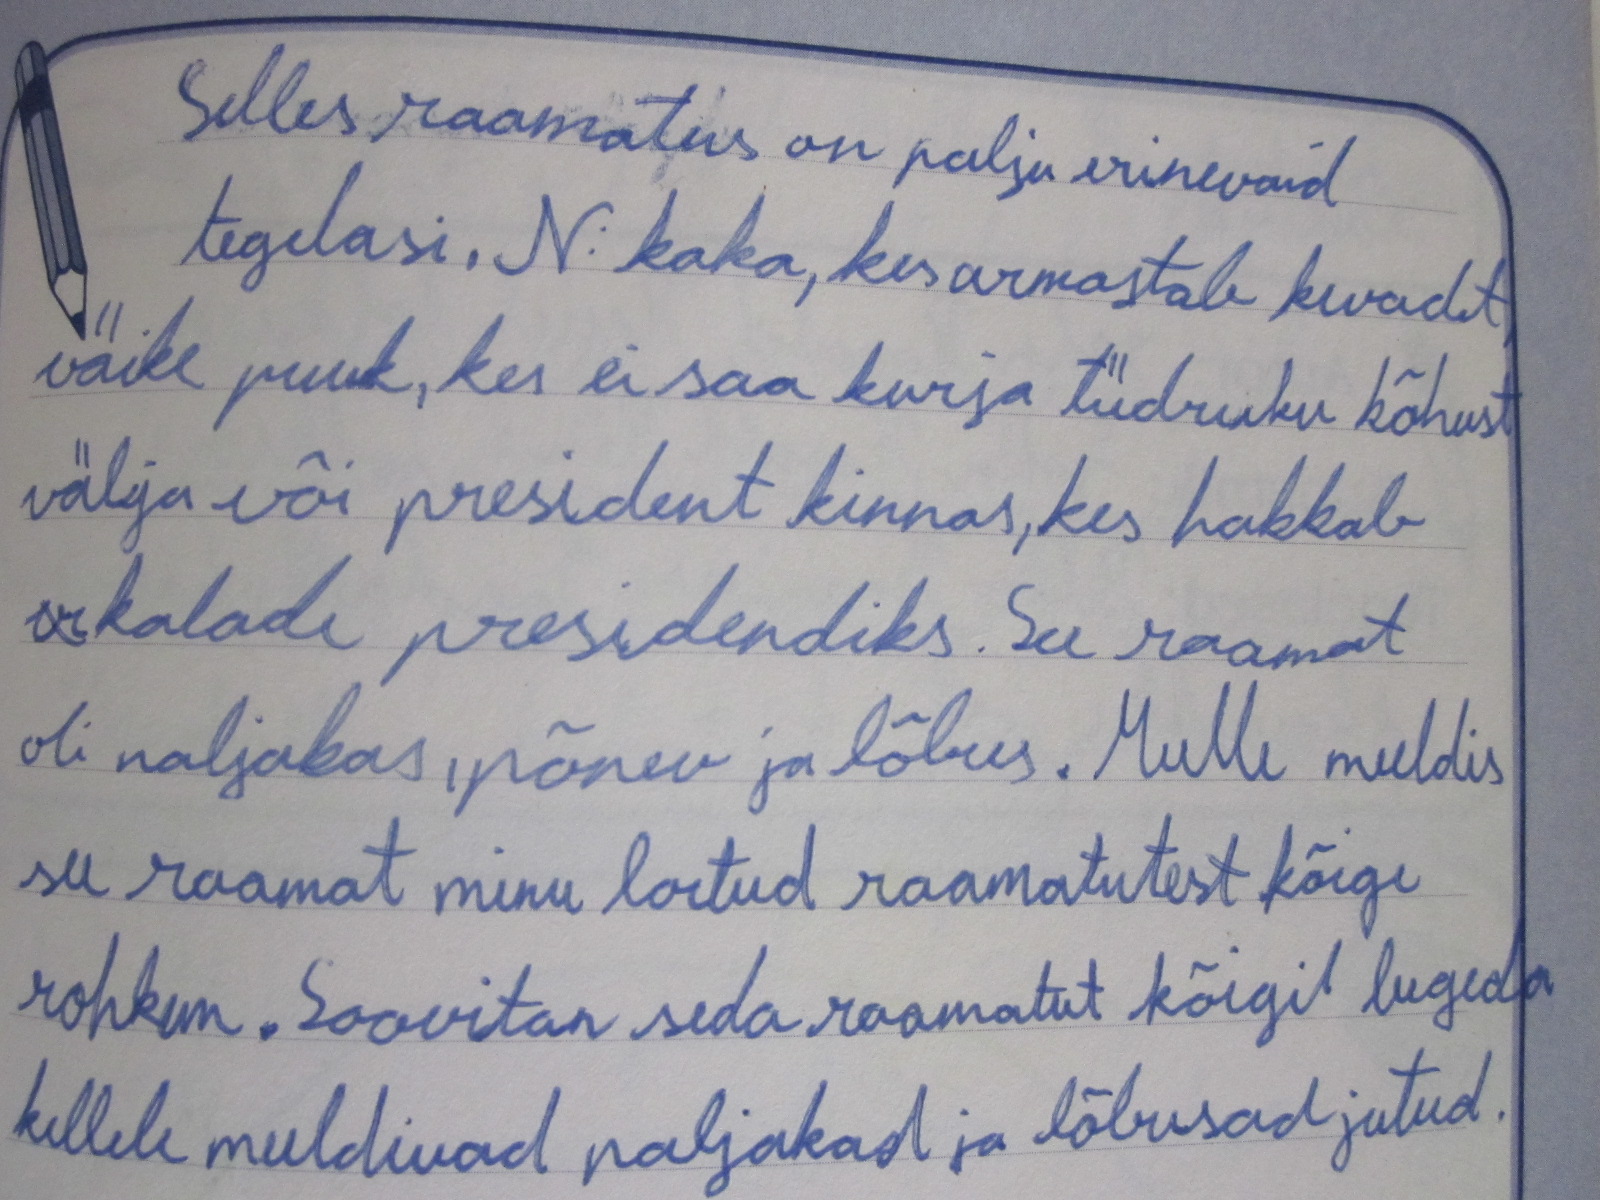 Selles raamatus on palju erinevaid
tegelasi. N: kaka, kes armastab kevadet,
väike puuk, kes ei saa kurja tüdruku kõhust
välja või president kinnas, kes hakkab
kalade presidendiks. See raamat
oli naljakas, põnev ja lõbus. Mulle meeldis
see raamat minu loetud raamatutest kõige
rohkem. Soovitan seda raamatut kõigil lugeda
kellele meeldivad naljakad ja lõbusad jutud.